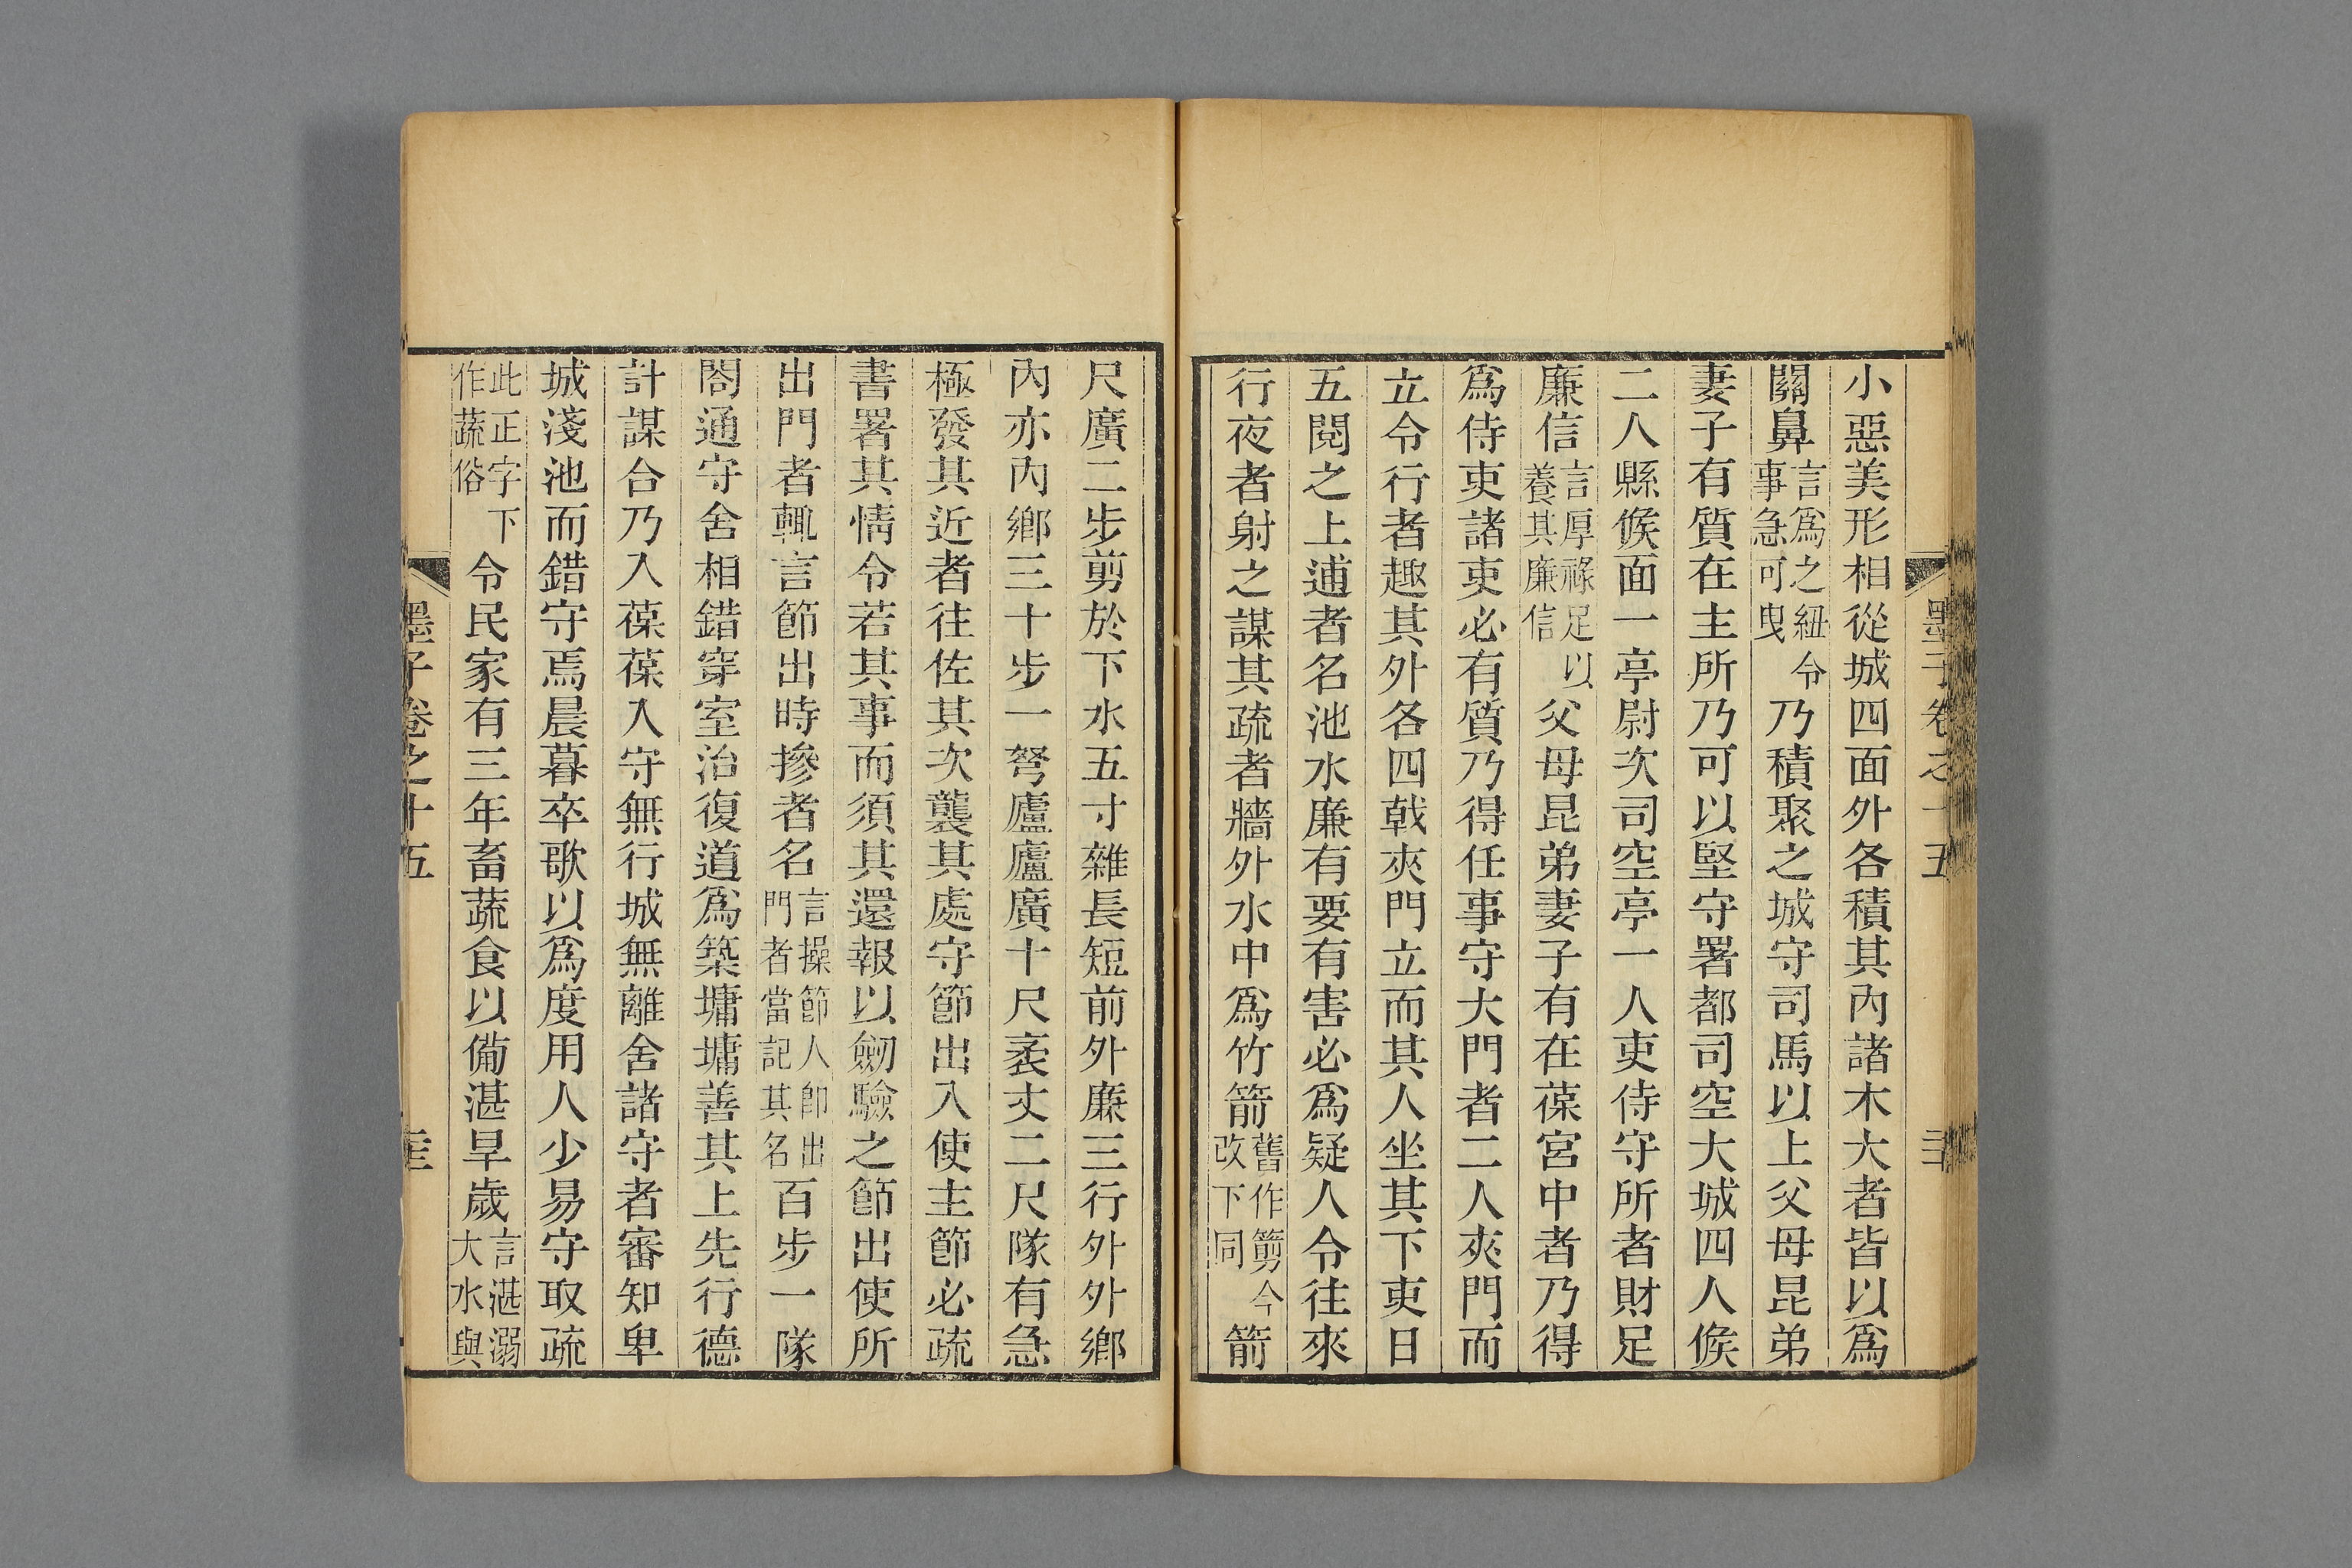 墨子卷之十五
小惡美形相從城四面外各積其內諸木大者皆以爲
關鼻言爲之紐令事急可曳乃積聚之城守司馬以上父母昆弟
妻子有質在主所乃可以堅守署都司空大城四人候
二人縣候面一亭尉次司空亭一人吏侍守所者財足
廉信言厚祿足以養其廉信父母昆弟妻子有在葆宮中者乃得
爲侍吏諸吏必有質乃得任事守大門者二人夾門而
立令行者趣其外各四戟夾門立而其人坐其下吏日
五閱之上逋者名池水廉有要有害必爲疑人令往來
行夜者射之謀其疏者牆外水中爲竹箭舊作簕今改下同箭
尺廣二步剪於下水五寸雜長短前外廉三行外外鄉
內亦內鄉三十步一弩廬廬廣十尺袤丈二尺隊有急
極發其近者往佐其次襲其處守節出入使主節必疏
書署其情令若其事而須其還報以劒驗之節出使所
出門者輒言節出時摻者名言操節人卽出門者當記其名百步一隊
閤通守舍相錯穿室治復道爲築墉墉善其上先行德
計謀合乃入葆葆入守無行城無離舍諸守者審知卑
城淺池而錯守焉晨暮卒歌以爲度用人少易守取疏
此正字下作蔬俗令民家有三年畜蔬食以備湛旱歲言湛溺大水與
墨子卷之十五